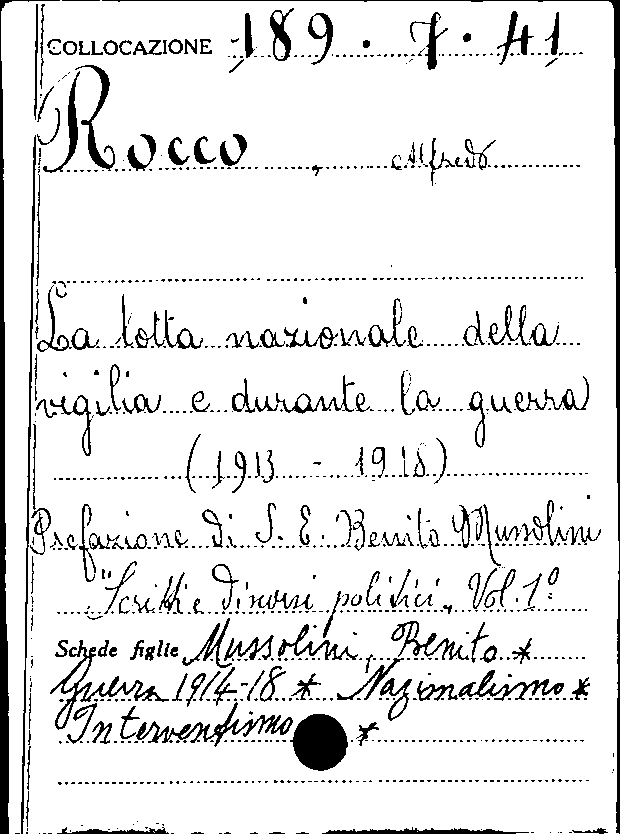 COLLOCAZIONE 189 . 7 . 41
Rocco, Alfredo
La lotta nazionale della
vigilia e durante la guerra
(1913 - 1918)
Prefazione di S. E. Benito Mussolini
"Scritti e discorsi politici„ Vol. 1º
Schede figlie Mussolini, Benito *
Guerra 1914-18 * Nazionalismo *
Interventismo *